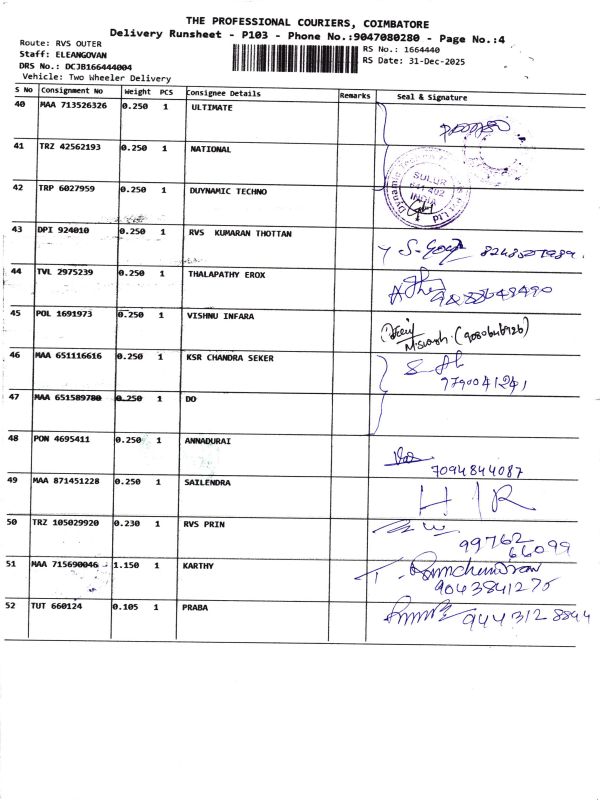 THE PROFESSIONAL COURIERS, COIMBATORE
Delivery Runsheet - P103 - Phone No.:9047080280 - Page No.:4
Route: RVS OUTER
Staff: ELEANGOVAN
DRS No.: DCJB166444004
Vehicle: Two Wheeler Delivery
RS No.: 1664440
RS Date: 31-Dec-2025
S No Consignment No Weight PCS Consignee Details Remarks Seal & Signature
40 MAA 713526326 0.250 1 ULTIMATE
41 TRZ 42562193 0.250 1 NATIONAL
42 TRP 6027959 0.250 1 DUYNAMIC TECHNO
SULUR
641 402
INDIA
43 DPI 924010 0.250 1 RVS KUMARAN THOTTAN
44 TVL 2975239 0.250 1 THALAPATHY EROX
45 POL 1691973 0.250 1 VISHNU INFARA
46 MAA 651116616 0.250 1 KSR CHANDRA SEKER
47 MAA 651589780 0.250 1 DO
48 PON 4695411 0.250 1 ANNADURAI
7094844087
49 MAA 871451228 0.250 1 SAILENDRA
50 TRZ 105029920 0.230 1 RVS PRIN
99762
66099
51 MAA 715690046 1.150 1 KARTHY
9043841275
52 TUT 660124 0.105 1 PRABA
9443128894